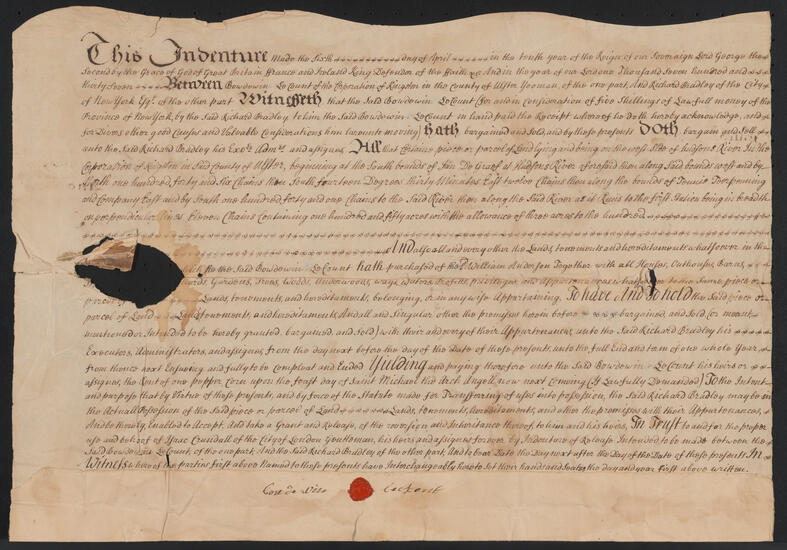 This Indenture Made the Sixth day of April in the tenth year of the Reign of our Sovereign Lord George the
Second by the Grace of God of Great Britain ffrance and Ireland King Defender of the ffaith &c And in the year of our Lord one Thousand Seven hundred and
thirty Seven Between Bowdewin LeCount of the Corporation of Kingston in the County of Ulster Yeoman, of the one part, And Richard Bradley of the City
of New York Esqr. of the other part Witnesseth that the Said Bowdewin LeCount for and in Consideration of five Shillings of Lawfull money of the
Province of New York by the Said Richard Bradley to him the Said Bowdewin LeCount in hand paid the Receipt whereof he Doth hereby acknowledge, and
for Divers other good Causes and Valuable Considerations him thereunto moving, hath bargained and Sold, and by these presents Doth bargain and Sell
unto the Said Richard Bradley his Exors. Admrs. and assigns, All that Certaine piece or parcel of Land Lying and being on the west Side of hudsons River In the
Corporation of Kingston in Said County of Ulster, beginning at the South bounds of Jan De Graef at Hudsons River aforesaid then along Said bounds west and by
North one hundred, forty and Six Chains then South fourteen Degrees thirty Minutes East twelve Chains then along the bounds of
and Company East and by South one hundred, forty and one Chains to the Said River then along the Said River as it Runs to the first Station being in breadth
on perpendicular Lines Eleven Chains Containing one hundred and fifty acres with the allowance of three acres to the hundred
And also all and every other the Lands, tenements and hereditaments whatsoever in the
which he the Said Bowdewin LeCount hath purchased of the William Anderson Together with all Houses, Outhouses, Barns,
Gardens, Trees, Woods, Underwoods, ways, Waters, Profits, priviledges, and appurtenances whatsoever to the Same piece or
parcel of Lands, tenements, and hereditaments, belonging, or in any wise Appertaining, To have And to hold the Said piece or
parcel of Land Lands tenements, and hereditaments, And all and Singular other the premises herein before bargained, and Sold, (or meant
mentioned or Intended to be hereby granted, bargained, and Sold) with their and every of their Appurtenances, unto the Said Richard Bradley his
Executors, Administrators, and assigns, from the day next before the day of the Date of these presents, unto the full End and term of one whole Year
from thence next Ensuing and fully to be Compleat and Ended Yielding and paying therefore unto the Said Bowdewin LeCount his heirs or
assignes, the Rent of one pepper Corn upon the feast day of Saint Michael the Arch Angell now next Comeing (If Lawfully Demanded) To the Intent
and purpose that by Virtue of these presents, and by force of the Statute made for Transferring of uses into possession, the Said Richard Bradley may be in
the Actuall Possession of the Said piece or parcel of Land Lands, tenements, hereditaments, and other the premises with their Appurtenances,
And be thereby Enabled to Accept, And take a Grant and Release, of the reversion and Inheritance thereof, to him and his heirs, In Trust to and for the proper
use and behoof of Isaac Crundall of the City of London Gentleman, his heirs and assignes forever by Indenture of Release Intended to be made between the
Said Bowdewin LeCount, of the one part, And the Said Richard Bradley of the other part, And to bear Date the Day next after the Day of the Date of these presents In
Witness whereof the parties first above Named to these presents have Interchangeably hereto Set their hands and Seales the day and year first above written.